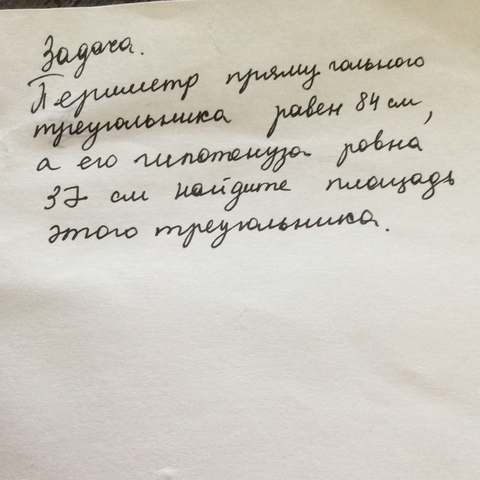 Задача.
Периметр пряму гольного
треугольника равен 84 см,
а его гипотенуза ровна
37 см найдите площадь
этого треугольника.